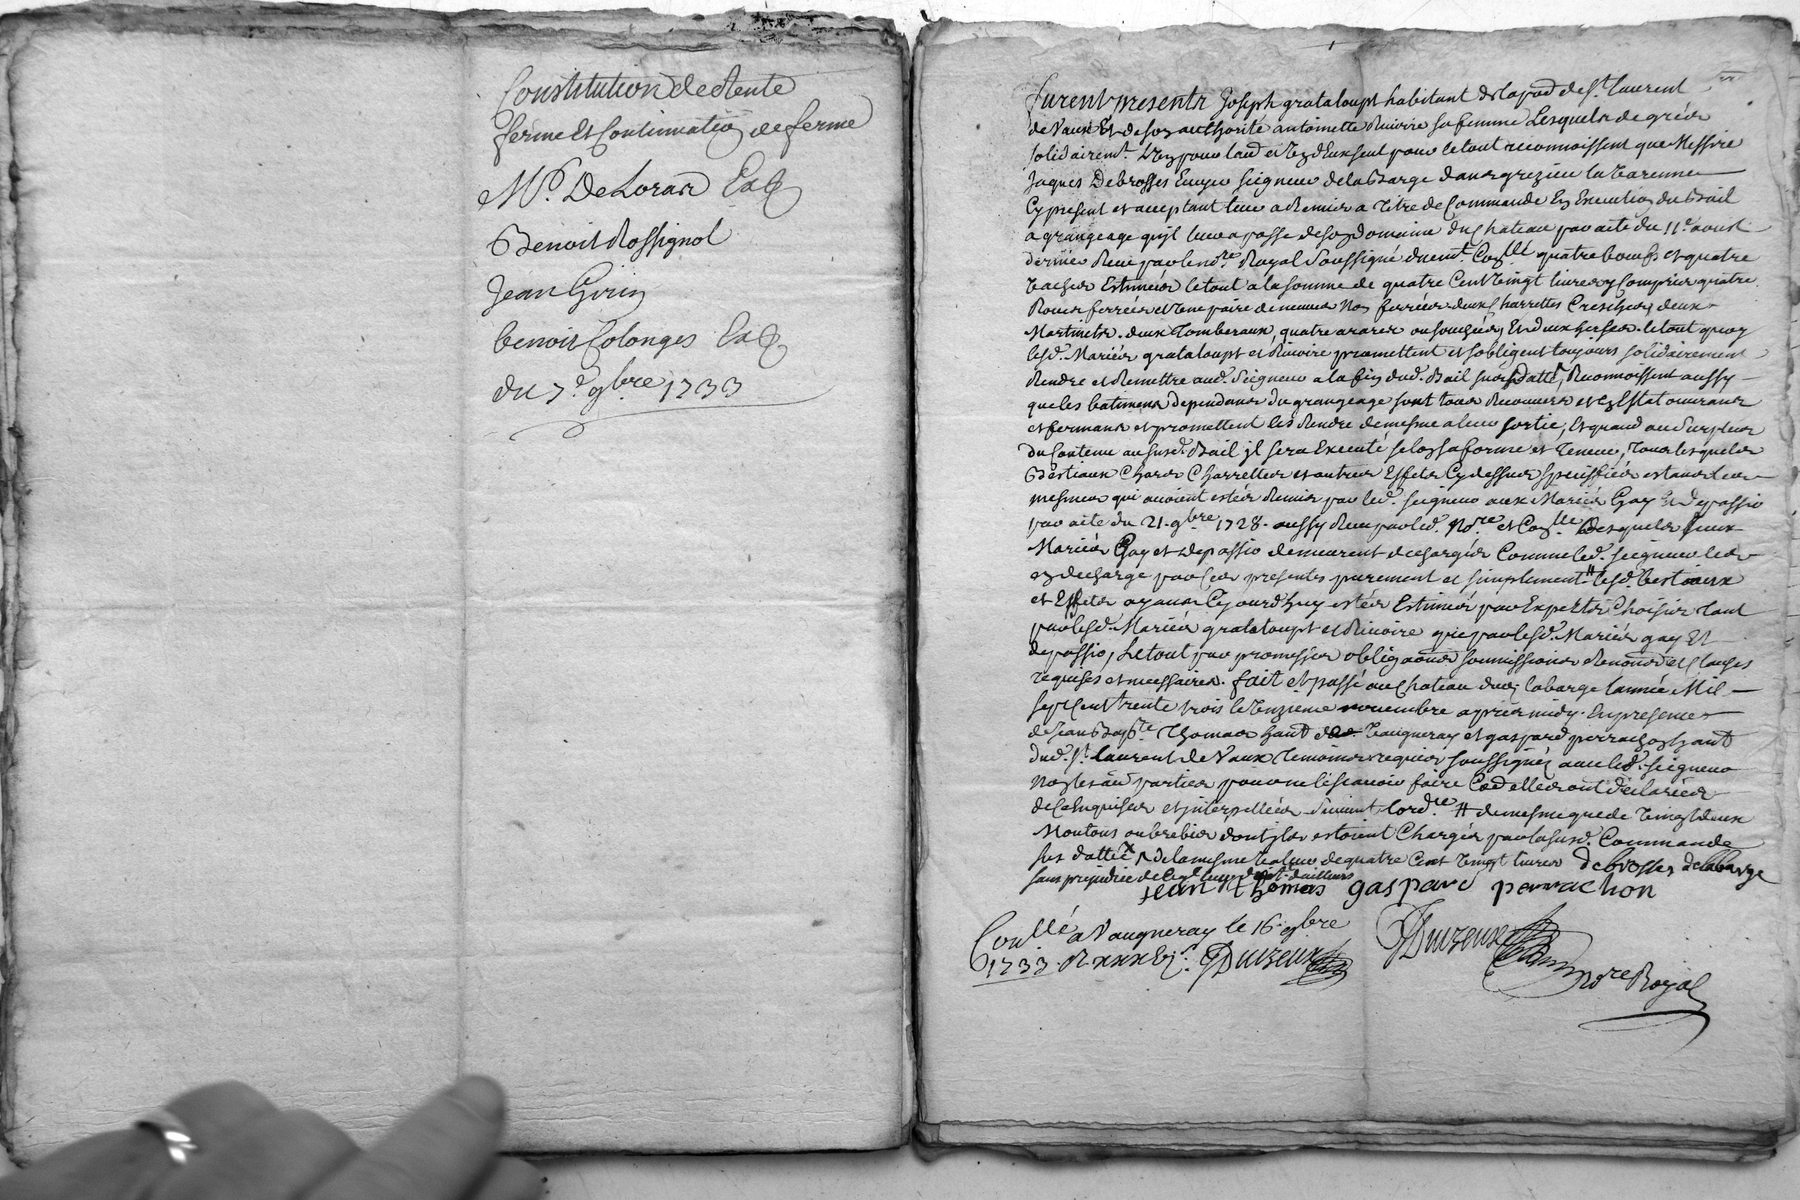 Constitution de Rente
ferme Et Continuation de ferme
Mr. De Loras Ecr
Benoit Rossignol
Jean Girin
benoit Colonges
du 7e 9bre 1733
furent presents Joseph grataloup habitant de la par de St. laurent
de Vaux Et de son authorité antoinette Rivoire sa femme Lesquels de gréér
solidairemt. L'un pour l'autre et seul pour le tout reconnoissent que Messire
Jaques Debrosses Ecuyer Seigneur de la Barge dans grezieu la Varenne
Cy present et acceptant leur a Remis a Titre de Commande En Execution du Bail
a grangeage qu'jl leur a passé de son domaine du Chateau par acte du 11e. aoust
dernier Receu par le nore. Royal Soussigné duemt. Conllé quatre boeufs et quatre
Vaches Estimées le tout a la somme de quatre Cent Vingt livres y Compris quatre
Roues ferrées et Une paire de neuves Non ferrées deux Charrettes deux
deux Tombereaux, quatre araires En deux herses. le tout quoy
lesd. Mariés grataloup et Rivoire promettent et s'obligent toujours solidairement
Rendre et Remettre aud. Seigneur a la fin dud. Bail susdatté, Reconnoissent aussy
que les batimens dependans du grangeage sont tous Recouverts et En Estat ouvrans
et fermans et promettent les Rendre de mesme a leur sortie, Et quand au Surplus
du Contenu au susd. Bail jl sera Executé selon sa forme et Teneur, Tous lesquels
Bestiaux Chars Charrettes et autres Effets Cy dessus speciffiés estans les
mesmes qui avoient estés Remis par led. seigneur aux Mariés Gay Et depassio
par acte du 21. 9bre 1728. aussy Receu par led. Nore et Conllé Desquels
Mariés Gay et depassio demeurent dechargés Comme led. seigneur les
en decharge par Ces presentes purement et simplement # lesd. bestiaux
et Effets ayans Cejourd'huy estés Estimés par Experts Choisis tant
par lesd. Mariés grataloup et Rivoire que par lesd. Mariés gay Et
depassio, Le tout par promesses obligaons soumissions Renonons et Clauses
requises et necessaires. fait et passé au Chateau dud. labarge l'année Mil
sept Cent trente trois le Unzieme novembre après midy. En presence
de Jean Bapte Thomas hant de Vaugneray et gaspard perrachon hant
dud. St. laurent de Vaux Temoins requis soussignés avec led. seigneur
Non lesd. parties pour ne le scavoir faire Co elles ont declarées
de Ce Enquises et jnterpellées suivant l'ordre. # de mesme que de Vingt deux
Moutons ou brebis dont jls estoient Chargés par la susd. Commande
sus dattée de la mesme Valeur de quatre Cent Vingt livres debrosses delabarge
sans prejudice de d'ailleurs
jean thomas gaspard perrachon
Conllé a Vaugneray le 16 9bre
1733.
nore Royal